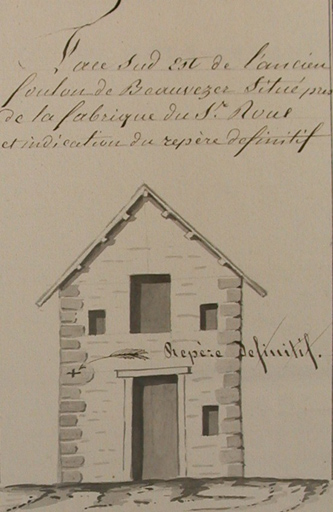 Face Sud Est de l'ancien
foulon de Beauvezer Situé près
de la fabrique du Sr. Roux
et indication du repère definitif
Repère definitif.